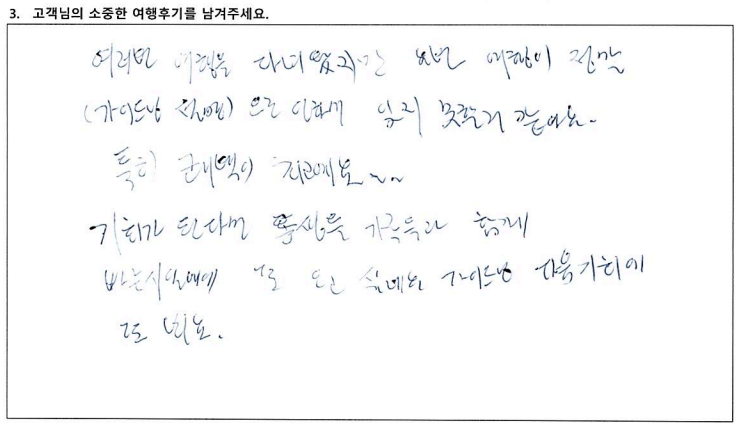 3. 고객님의 소중한 여행후기를 남겨주세요.
여러번 여행을 다녀왔지만 요번 여행이 정말
(가이드님 설명)으로 인하여 잊지 못할거 같아요.
특히 최고예요~~
기회가 된다면 가족들과 함께
빠른시일내에 또 오고 싶네요 가이드님 다음기회에
또 봬요.